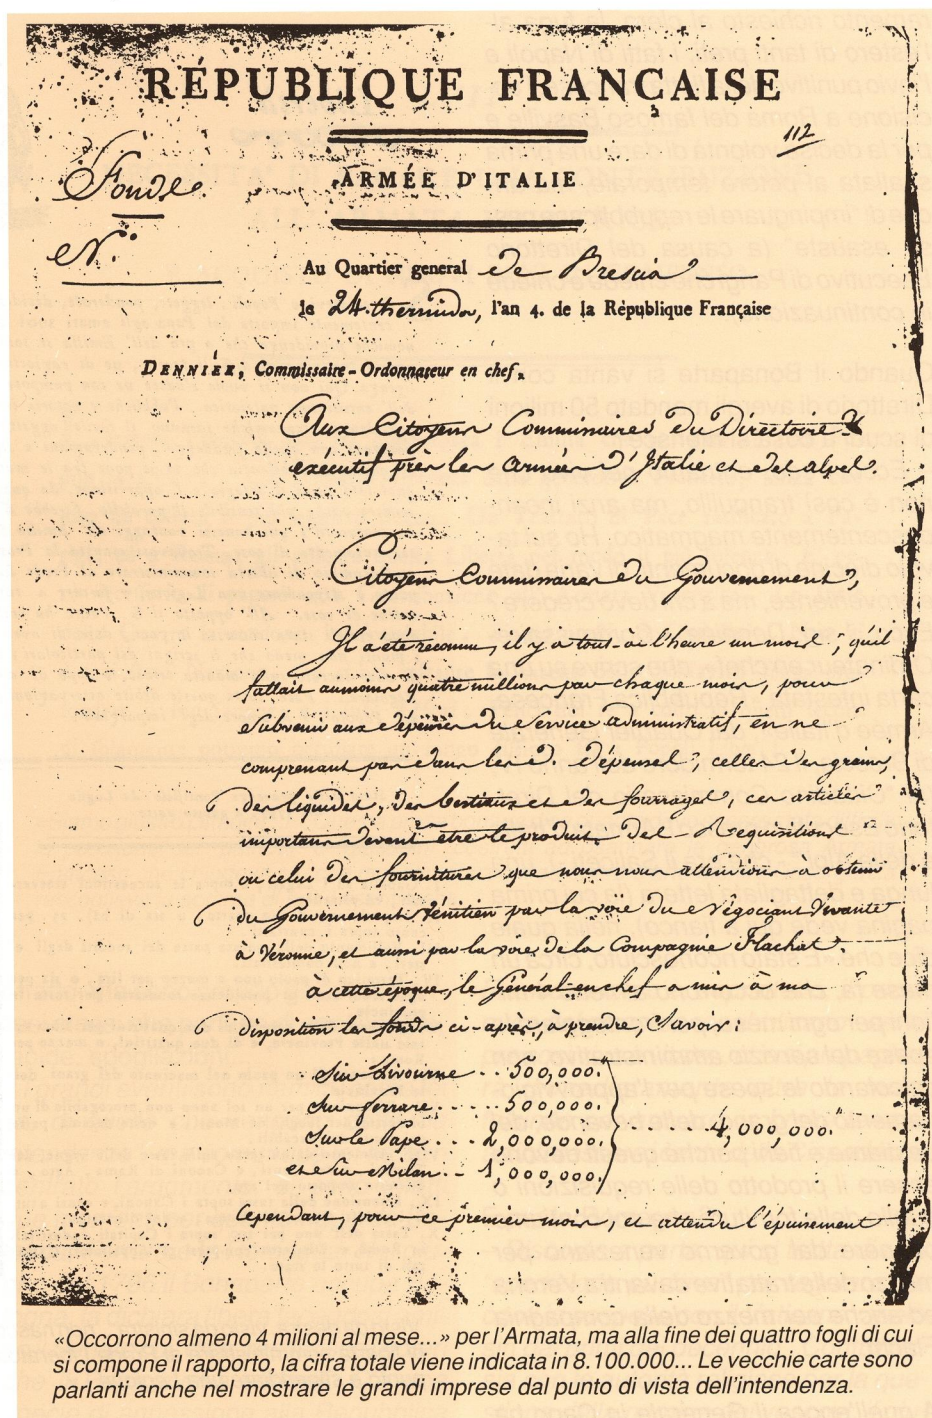 RÉPUBLIQUE FRANÇAISE
112
ARMÉE D'ITALIE
Fonds
N.°
Au Quartier general de Brescia
le 24. thermidor, l'an 4. de la République Française
DENNIÉE, Commissaire-Ordonnateur en chef,
Aux Citoyens Commissaires du Directoire
exécutif près les armées d'Italie et des alpes.
Citoyens Commissaires du Gouvernement,
Il a été reconnu, il y a tout-à l'heure un mois, qu'il
fallait aumoins quatre millions par chaque mois, pour
subvenir aux dépenses du service administratif, en ne
comprenant pas dans les d. dépenses, celles des grains,
des liquides, des bestiaux et des fourrages, ces articles
importans devant être le produit des Requisitions
ou celui des fournitures que nous nous attendions à obtenir
du Gouvernement Vénitien par la voie du Négociant Vivante
à Véronne, et aussi par la voie de la Compagnie Flachat.
à cette époque, le Général en chef a mis à ma
disposition les fonds ci-après, à prendre, Savoir:
Sur Livourne .. 500,000.
Sur ferrare ..... 500,000.
Sur le Pape ... 2,000,000. ..... 4,000,000."
et Sur Milan .. 1,000,000.
Cependant, pour ce premier mois, et attendu l'épuisement
«Occorrono almeno 4 milioni al mese...» per l'Armata, ma alla fine dei quattro fogli di cui
si compone il rapporto, la cifra totale viene indicata in 8.100.000... Le vecchie carte sono
parlanti anche nel mostrare le grandi imprese dal punto di vista dell'intendenza.